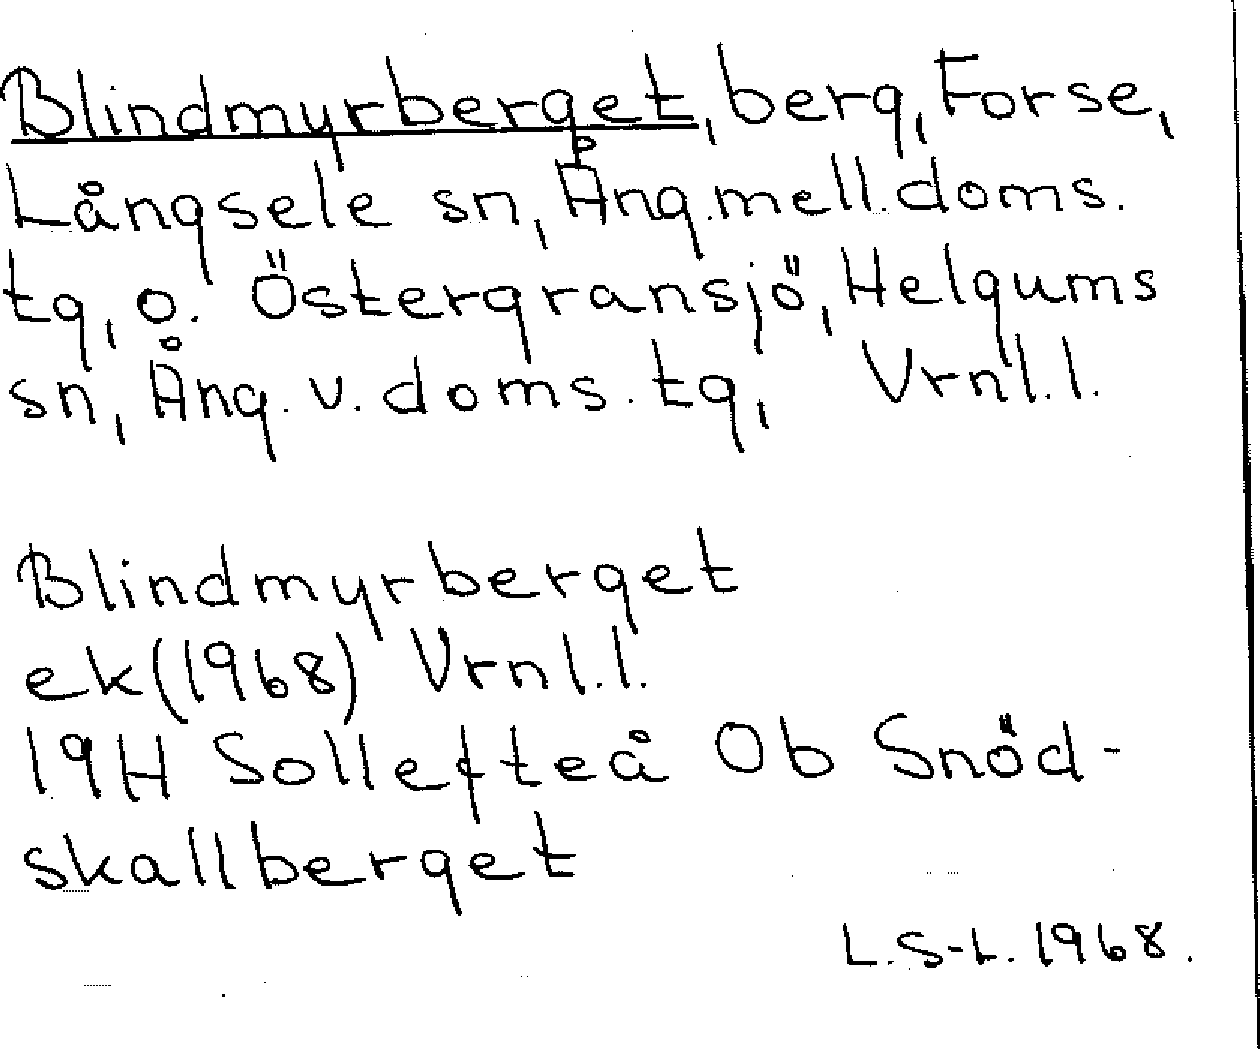 Blindmyrberget, berg, Forse,
Långsele sn, Ång.mell.doms.
tg, o. Östergransjö, Helgums
sn, Ång. v. doms. tg, Vrnl.l.
Blindmyrberget
ek(1968) Vrnl.l.
19H Sollefteå 0b Snöd-
skallberget
L.S-L. 1968.